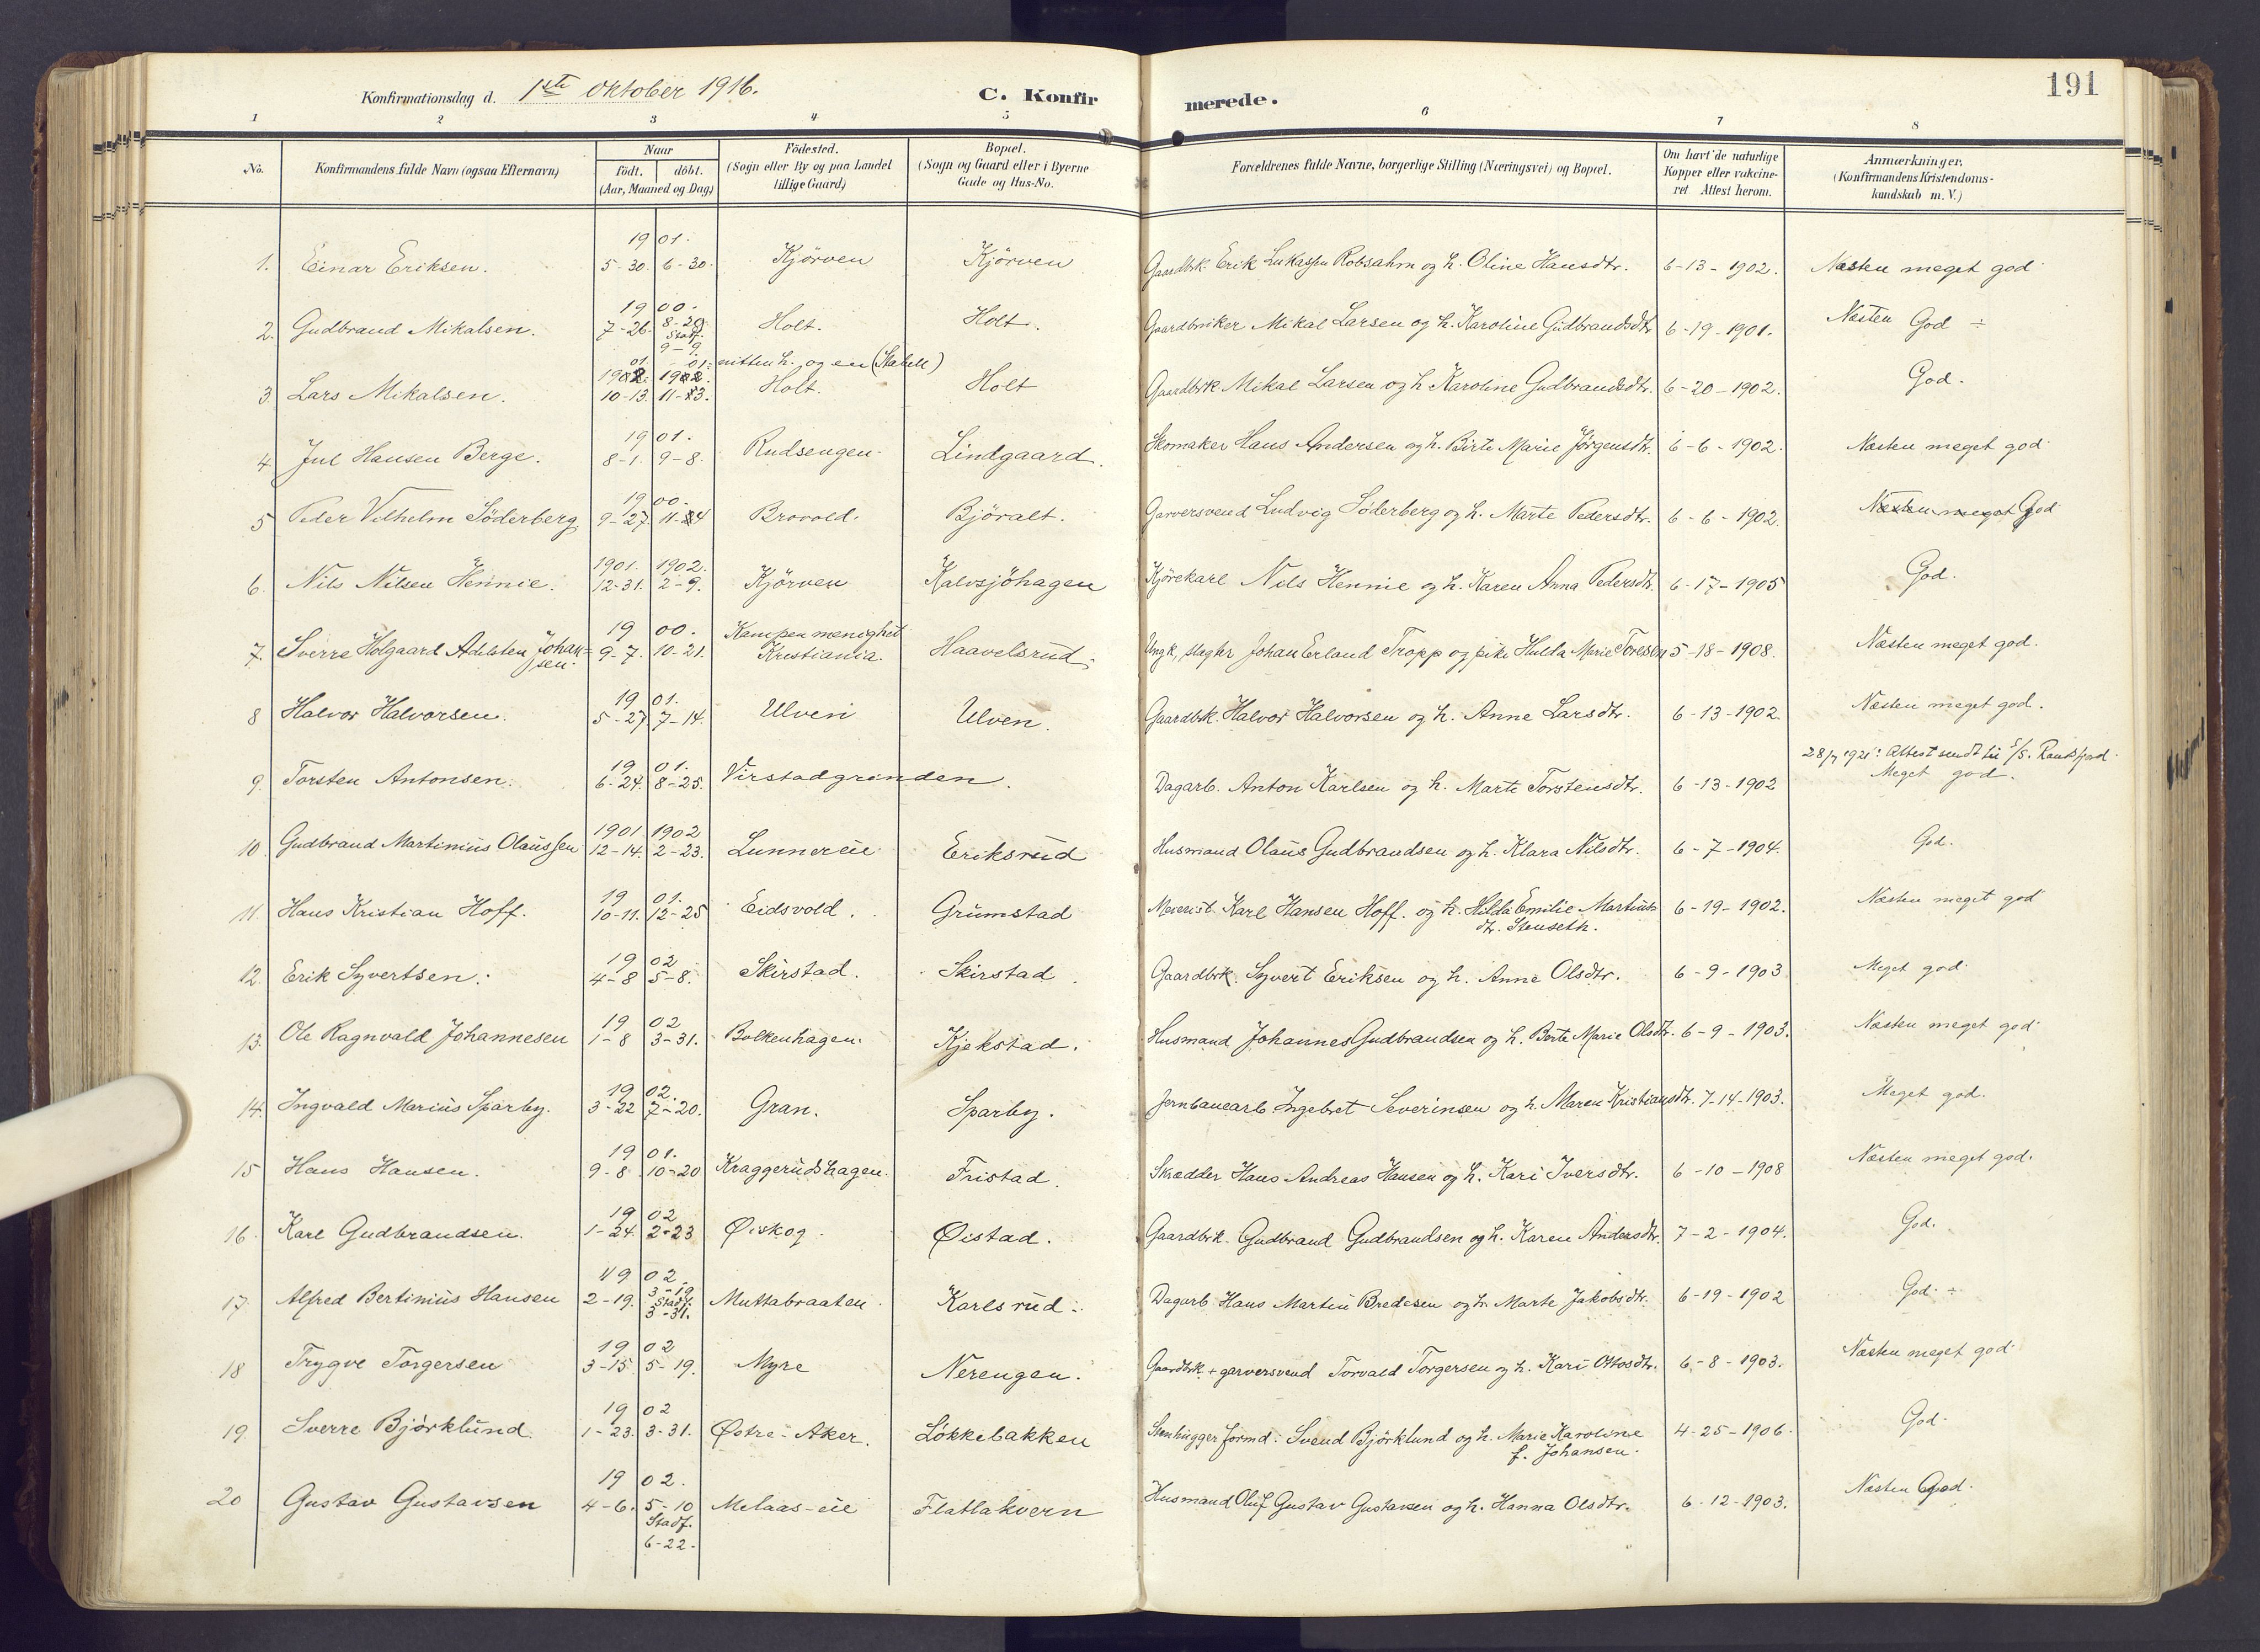 Konfirmationsdag d. 1ste Oktober 1916. C. Konfirmerede. 191
1 2 3 4 5 6 7 8
No. Konfirmandens fulde Navn (ogsaa Efternavn) Naar födt. döbt. (Aar, Maaned og Dag) Födested. (Sogn eller By og paa Landet tillige Gaard) Bopæl. (Sogn og Gaard eller i Byerne Gade og Hus-No. Forældrenes fulde Navne, borgerlige Stilling (Næringsvei) og Bopæl. Om havt de naturlige Kopper eller vakcineret Attest herom. Anmærkninger. (Konfirmandens Kristendomskundskab m. V.)
1. Einar Eriksen. 1901. 5-30. 6-30. Kjörven Kjörven Gaardbrk. Erik Lukassen Robsahm og h. Oline Hansdtr. 6-13-1902. Næsten meget god
2. Gudbrand Mikalsen. 1900. 7-26. 8-26. Stadf. 9-9. Holt. Holt. Gaardbruker Mikal Larsen og h. Karoline Gudbrandsdtr 6-19-1901. Næsten God ÷
3. Lars Mikalsen. 01. 01. nitten h. og en (Stabell) 1902. 1902. 10-13. 11-23. Holt. Holt Gaardbrk. Mikal Larsen og h Karoline Gudbrandsdtr. 6-20-1902. God.
4. Jul Hansen Berge. 1901. 8-1. 9-8. Rudsengen Lindgaard. Skomaker Hans Andersen og h. Birte Marie Jørgensdtr. 6-6-1902. Næsten meget god
5 Peder Vilhelm Söderberg 1900. 9-27. 11-24 Brovold. Björalt. Garversvend Ludvig Söderberg og h. Marte Pedersdtr. 6-6-1902. Næsten meget God
6. Nils Nilsen Hennie. 1901. 1902. 12-31. 2-9. Kjörven Kalvsjöhagen Kjörekarl Nils Hennie og h. Karen Anna Pedersdtr. 6-17-1905 God.
7. Sverre Holgaard Adelsten Johansen. 1900. 9-7. 10-21. Kampen menighet Kristiania. Haavelsrud. Ungk, slagter Johan Erland Tropp og pike Hulda Marie Toresen 5-18-1908. Næsten meget god.
8 Halvor Halvorsen. 1901. 5-27 7-14. Ulven Ulven. Gaardbrk. Halvor Halvorsen og h. Anne Larsdtr. 6-13-1902. Næsten meget god.
28/7 1921: Attest sendt til S/S. Randsfjord.
9. Torsten Antonsen. 1901. 6-24. 8-25. Virstadgrinden. Dagarb. Anton Karlsen og h. Marte Torstensdtr. 6-13-1902 Meget god.
10. Gudbrand Martinius Olaussen 1901 1902 12-14. 2-23. Lunnereie Eriksrud Husmand Olaus Gudbrandsen og h. Klara Nilsdtr. 6-7-1904. God.
11. Hans Kristian Hoff. 1901. 10-11. 12-25 Eidsvold. Grumstad Meierist Karl Hansen Hoff. og h. Hilda Emilie Martinsdtr. Stenseth. 6-19-1902. Næsten meget god
12. Erik Syvertsen. 1902 4-8 5-8. Skirstad. Skirstad Gaardbrk. Syvert Eriksen og h. Anne Olsdtr. 6-9-1903 Meget god.
13. Ole Ragnvald Johannesen 1902 1-8 3-31. Bolkenhagen. Kjekstad. Husmand Johannes Gudbrandsen og h. Berte Marie Olsdtr. 6-9-1903. Næsten meget god
14. Ingvald Marius Sparby. 1902. 3-22 7-20. Gran. Sparby. Jernbanearb Ingebret Severinsen og h. Maren Kristiansdtr. 7-14-1903. Meget god.
15 Hans Hansen. 1901. 9-8 10-20 Kraggerudshagen. Fristad. Skrædder Hans Andreas Hansen og h. Kari Iversdtr. 6-10-1908 Næsten meget god.
16. Karl Gudbrandsen. 1902 1-24. 2-23 Øiskog Øistad. Gaardbrk. Gudbrand Gudbrandsen og h. Karen Andersdtr. 7-2-1904. God.
17. Alfred Bertinius Hansen 1902. 2-19. 3-19 Stadf. 3-31. Muttabraaten. Karlsrud. Dagarb. Hans Martin Bredesen og h. Marte Jakobsdtr. 6-19-1902 God. ÷
18 Trygve Torgersen 1902 3-15 5-19. Myre Nerengen. Gaardbrk. + garversvend Torvald Torgersen og h. Kari Ottosdtr. 6-8-1903. Næsten meget god
19. Sverre Björklund 1902 1-23. 3-31. Østre-Aker. Løkkebakken Stenhugger formd. Svend Björklund og h. Marie Karoline f. Johansen. 4-25-1906. God.
20 Gustav Gustavsen 1902. 4-6. 5-10 Stadf. 6-22. Melaas-eie Flatlakvern Husmand Oluf Gustav Gustavsen og h. Hanna Olsdtr. 6-12-1903. Næsten God.